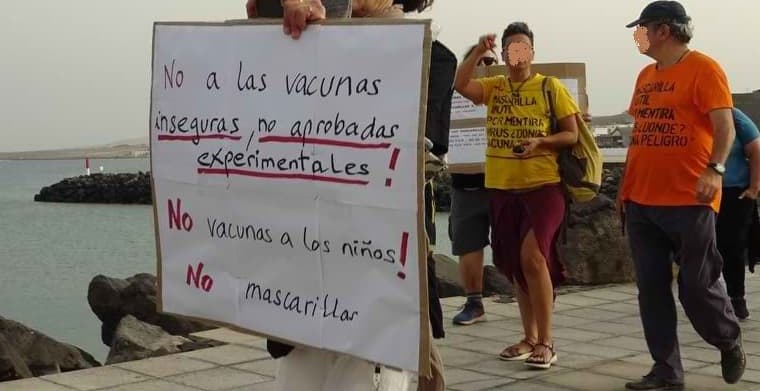 No a las vacunas
inseguras, no aprobadas
experimentales!
No vacunas a los niños!
No mascarillas
MASCARILLA
UTIL
POR MENTIRA
VIRUS ¿DONDE
MASCARILLA
UTIL
MENTIRA
PELIGRO